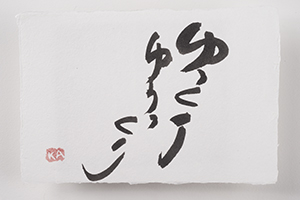 ゆっくり
ゆうっくり
KA